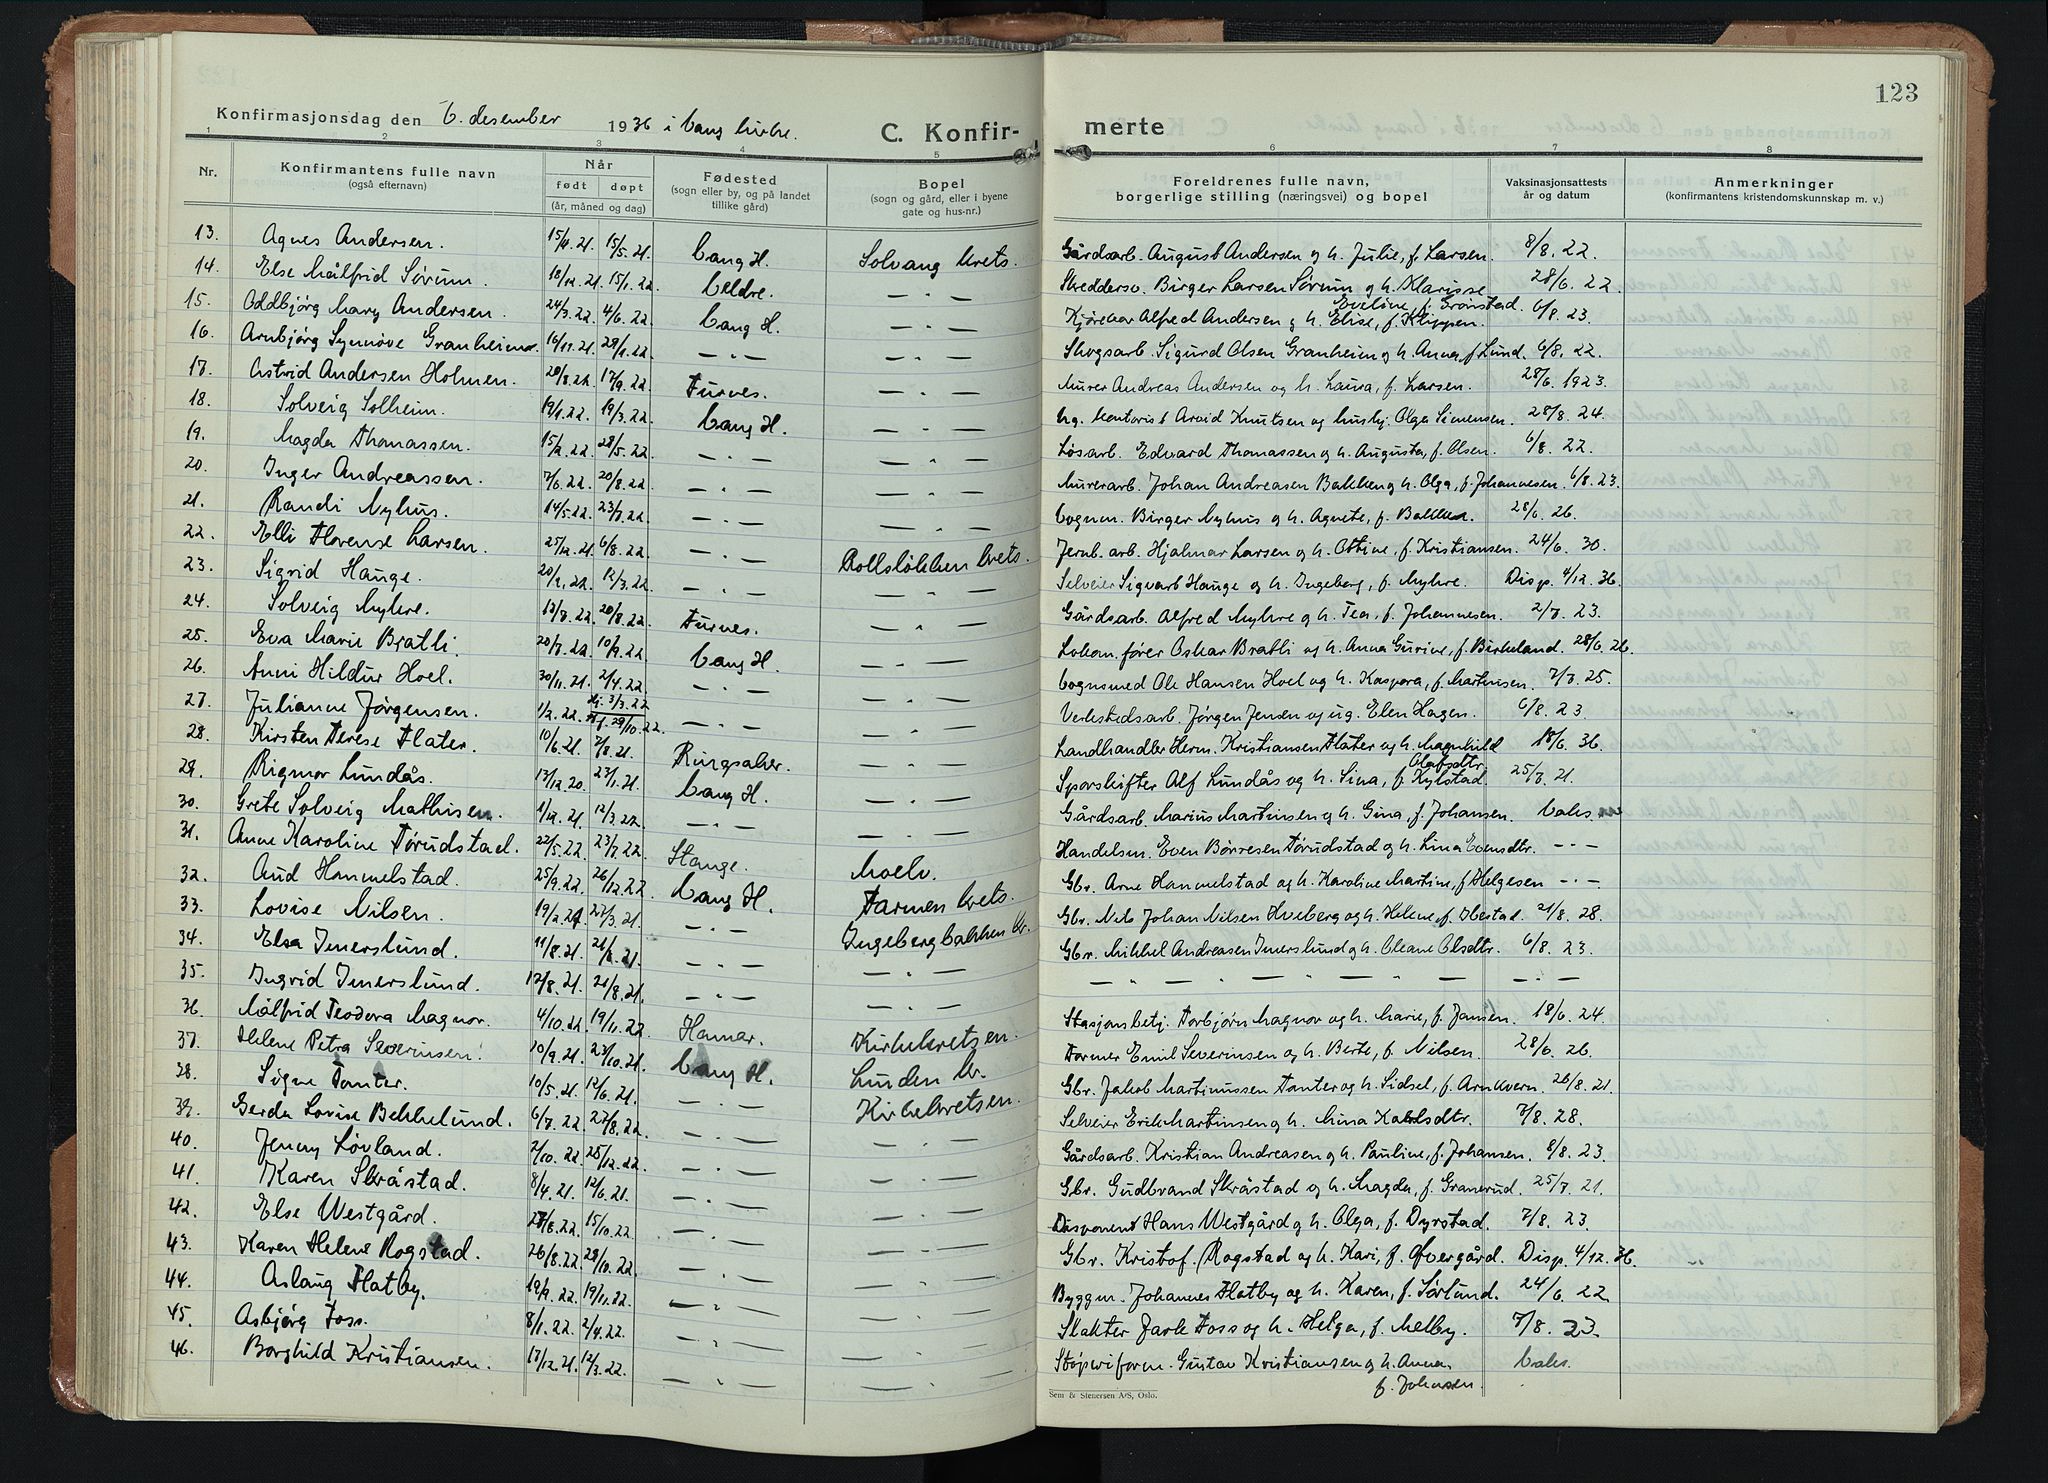 123
Konfirmasjonsdag den 6. desember 1936 i Vang kirke.
C. Konfir-
merte
1 2 3 4 5 6 7 8
Nr.
Konfirmantens fulle navn
(også efternavn)
Når
født døpt
(år, måned og dag)
Fødested
(sogn eller by, og på landet
tillike gård)
Bopel
(sogn og gård, eller i byene
gate og hus-nr.)
Foreldrenes fulle navn,
borgerlige stilling (næringsvei) og bopel
Vaksinasjonsattests
år og datum
Anmerkninger
(konfirmantens kristendomskunnskap m. v.)
13. Agnes Andersen. 15/4.21. 15/5.21. Vang H. Solvang krets. Gårdsarb. August Andersen og h. Julie, f. Larsen. 8/8. 22.
14. Else Målfrid Sørum. 18/12.21. 15/1.22. Veldre. — " — Skreddersv. Birger Larsen Sørum og h. Klarisse Eveline, f. Grønstad. 28/6. 22.
15. Oddbjørg Mary Andersen. 24/3.22. 4/6.22. Vang H. — " — Kjørekar Alfred Andersen og h. Elise, f. Klippen. 6/8. 23.
16. Arnbjørg Synnøve Granheim. 16/11.21. 29/1.22. — " — — " — Skogsarb. Sigurd Olsen Granheim og h. Anna, f. Lund. 6/8. 22.
17. Astrid Andersen Holmen. 20/8.22. 17/9.22. Furnes. — " — Murer Andreas Andersen og h. Laura, f. Larsen. 28/6. 1923.
18. Solveig Solheim. 19/1.22. 19/3.22. Vang H. — " — Ug. kontorist Arvid Knutsen og hushj. Olga Simensen. 28/8. 24.
19. Magda Thomassen. 15/2.22. 28/5.22. — " — — " — Løsarb. Edvard Thomassen og h. Augusta, f. Olsen. 6/8. 22.
20. Inger Andreassen. 7/6.22. 20/8.22. — " — — " — Murerarb. Johan Andreasen Bakken og h. Olga, f. Johannesen. 6/8. 23.
21. Randi Nyhus. 14/5.22. 23/7.22. — " — — " — Vognm. Birger Nyhus og h. Agnete, f. Bakken. 28/6. 26.
22. Elli Florense Larsen. 25/12.21. 6/8.22. — " — Rollsløkken krets. Jernb. arb. Hjalmar Larsen og h. Ottine, f. Kristiansen. 24/6. 30.
23. Sigrid Hauge. 20/1.22. 12/3.22. — " — — " — Selveier Sigvart Hauge og h. Ingeborg, f. Myhre. Disp. 4/12. 36.
24. Solveig Myhre. 17/7.22. 20/8.22. Furnes. — " — Gårdsarb. Alfred Myhre og h. Tea, f. Johannesen. 2/7. 23.
25. Eva Marie Bratli. 20/7.22. 10/9.22. Vang H. — " — Lokom. fører Oskar Bratli og h. Anna Gurine, f. Birkeland. 28/6. 26.
26. Anni Hildur Hoel. 30/11.21. 2/4.22. — " — — " — Vognsmed Ole Hansen Hoel og h. Kaspara, f. Martinsen. 7/7. 25.
27. Julianne Jørgensen. 1/2.22. Hj. 3/3.22 St. f. 29/10.22. — " — — " — Verkstedsarb. Jørgen Jensen og ug. Elen Hagen. 6/8. 23.
28. Kirsten Terese Flater. 10/6.21. 7/8.21. Ringsaker. — " — Landhandler Herm. Kristiansen Flater og h. Magnhild Olafsdtr. 18/6. 36.
29. Rigmor Lundås. 13/12.20. 23/1.21. Vang H. — " — Sporskifter Alf Lundås og h. Sina, f. Kylstad. 25/7. 21.
30. Grete Solveig Mathisen. 1/12.21. 12/3.22. — " — — " — Gårdsarb. Marius Martinsen og h. Gina, f. Johansen. Vaks.
31. Anne Karoline Tørudstad. 22/5.22. 23/7.22. Stange. Moelv. Handelsm. Even Børresen Tørudstad og h. Lina Evensdtr. — " —
32. Aud Hommelstad. 25/9.22. 26/12.22. Vang H. Farmen krets. Gbr. Arne Hommelstad og h. Karoline Martine, f. Helgesen — " —
33. Lovise Nilsen. 19/2.21. 27/3.21. — " — Ingebergbakken kr. Gbr. Nils Johan Nilsen Hveberg og h. Helene, f. Ilestad. 21/8. 28.
34. Elsa Imerslund. 11/8.21. 21/8.21. — " — — " — Gbr. Mikkel Andreasen Imerslund og h. Oleane Olsdtr. 6/8. 23.
35. Ingrid Imerslund. 12/8.21. 21/8.21. — " — — " — — " — " — " — — " —
36. Målfrid Teodora Magnor. 4/10.22. 19/11.22. Hamar. Kirkekretsen. Stasjonsbetj. Torbjørn Magnor og h. Marie, f. Jansen. 18/6. 24.
37. Helene Petra Severinsen. 10/9.21. 23/10.21. Vang H. Lunden kr. Former Emil Severinsen og h. Berte, f. Nilsen. 28/6. 26.
38. Signe Tomter. 10/5.21. 12/6.21. — " — Kirkekretsen. Gbr. Jakob Martinussen Tomter og h. Sidsel, f. Arnkvern. 26/8. 21.
39. Gerda Lovise Bekkelund. 6/7.22. 27/8.22. — " — — " — Selveier Erik Martinsen og h. Mina Karlsdtr. 7/8. 28.
40. Jenny Løvland. 2/10.22. 25/12.22. — " — — " — Gårdsarb. Kristian Andreasen og h. Pauline, f. Johansen. 6/8. 23.
41. Karen Skråstad. 8/4.21. 12/6.21. — " — — " — Gbr. Gudbrand Skråstad og h. Magda, f. Granerud. 25/7. 21.
42. Else Westgård. 27/8.22. 15/10.22. — " — — " — Disponent Hans Westgård og h. Olga, f. Dyrstad. 7/8. 23.
43. Karen Helene Rogstad. 26/8.22. 29/10.22. — " — — " — Gbr. Kristof. Rogstad og h. Kari, f. Øvergård. Disp. 4/12. 36.
44. Aslaug Flatby. 19/9.22. 19/11.22. — " — — " — Byggm. Johannes Flatby og h. Karen, f. Sørlund. 24/6. 22.
45. Asbjørg Foss. 8/1.22. 2/4.22. — " — — " — Slakter Jarle Foss og h. Helga, f. Melby. 7/8. 23.
46. Borghild Kristiansen. 17/12.21. 12/3.22. — " — — " — Støperiform. Gustav Kristiansen og h. Anna, f. Johnsen. Vaks.
Sem & Stenersen A/S, Oslo.